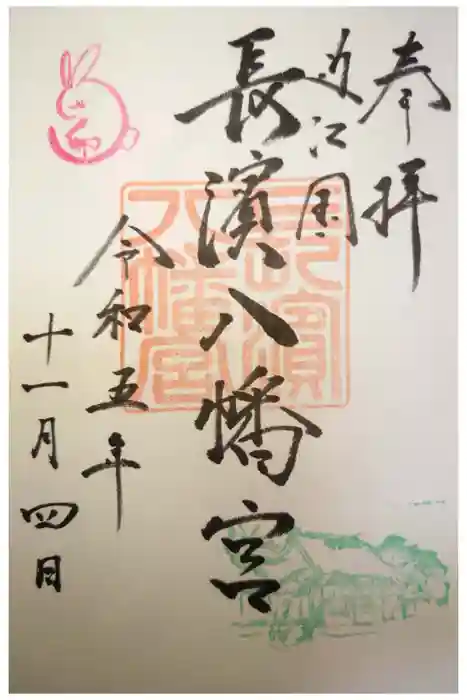 奉拝
近江国
長濱八幡宮
長濱八幡宮
令和五年
十一月四日